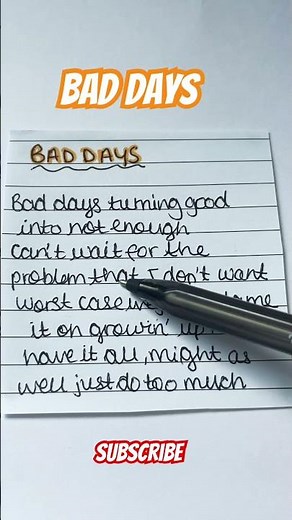 BAD DAYS
BAD DAYS
Bad days turning good
into not enough
Can't wait for the
problem that I don't want
worst case
it on growin' up
have it all, might as
well just do too much
SUBSCRIBE